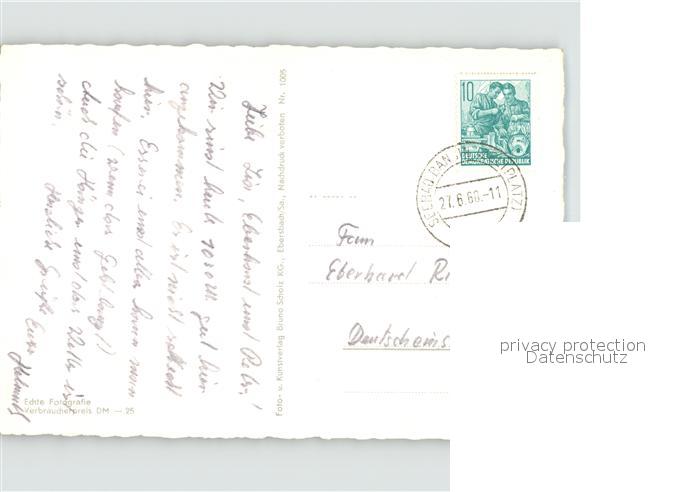 Liebe Lisa, Eberhard und Petra!
Wir sind heute 10³⁰ Uhr gut hier
angekommen. Es ist nicht schlecht
hier. Essen und alles kann man
kaufen (wenn das Geld langt!)
Auch die Hänger und das Wetter ist
schön.
Herzliche Grüße Euer
Helmut
Echte Fotografie
Verbraucherpreis DM —.25
Foto- u. Kunstverlag Bruno Scholz KG., Ebersbach-Sa., Nachdruck verboten Nr. 1005
10
5
DEUTSCHE
DEMOKRATISCHE REPUBLIK
SEEBAD BAN
PLATZ)
27.6.60.-11
Fam
Eberhard R
Deutscheins
privacy protection
Datenschutz